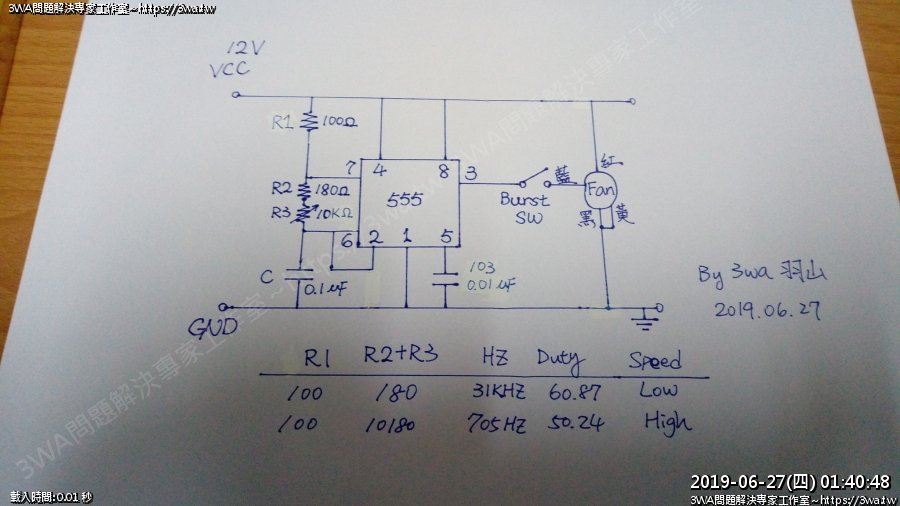 3WA問題解決專家工作室~https://3wa.tw
12V
VCC
R1 100Ω
7 4 8 3
藍 紅
R2 180Ω
555
Fan
R3 10KΩ
Burst
SW
黑 黃
6 2 1 5
C 0.1uF
103
0.01uF
By 3wa 羽山
2019.06.27
GND
R1 R2+R3 HZ Duty Speed
100 180 31KHZ 60.87 Low
100 10180 705HZ 50.24 High
3WA問題解決專家工作室~https://3wa.tw
載入時間:0.01 秒
2019-06-27(四) 01:40:48
3WA問題解決專家工作室~https://3wa.tw